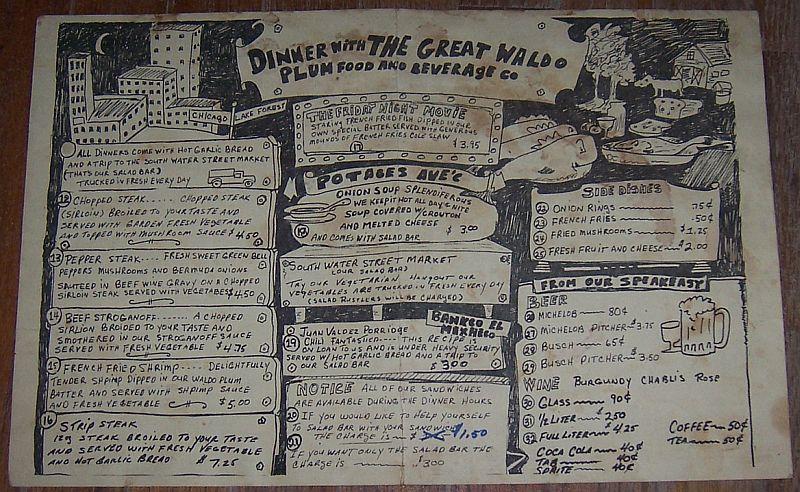 DINNER WITH THE GREAT WALDO
PLUM FOOD AND BEVERAGE CO
CHICAGO
LAKE FOREST
ALL DINNERS COME WITH HOT GARLIC BREAD
AND A TRIP TO THE SOUTH WATER STREET MARKET
(THATS OUR SALAD BAR)
TRUCKED IN FRESH EVERY DAY
12 CHOPPED STEAK..... CHOPPED STEAK
(SIRLOIN) BROILED TO YOUR TASTE AND
SERVED WITH GARDEN FRESH VEGETABLE
AND TOPPED WITH MUSHROOM SAUCE $4.50
13 PEPPER STEAK.... FRESH SWEET GREEN BELL
PEPPERS MUSHROOMS AND BERMUDA ONIONS
SAUTEED IN BEEF WINE GRAVY ON A CHOPPED
SIRLOIN STEAK SERVED WITH VEGETABLE $4.50
14 BEEF STROGANOFF....... A CHOPPED
SIRLION BROIDED TO YOUR TASTE AND
SMOTHERED IN OUR STROGANOFF SAUCE
SERVED WITH FRESH VEGETABLE $4.75
15 FRENCH FRIED SHRIMP..... DELIGHTFULLY
TENDER SHRIMP DIPPED IN OUR WALDO PLUM
BATTER AND SERVED WITH SHRIMP SAUCE
AND FRESH VEGETABLE $5.00
16 STRIP STEAK
12oz STEAK BROILED TO YOUR TASTE
AND SERVED WITH FRESH VEGETABLE
AND HOT GARLIC BREAD $7.25
THE FRIDAY NIGHT MOVIE
STARING FRENCH FRIED FISH DIPPED IN OUR
OWN SPECIAL BATTER SERVED WITH GENEROUS
MOUNDS OF FRENCH FRIES COLE SLAW
17 $3.95
POTAGES AVE'C
ONION SOUP SPLENDIFEROUS
WE KEEP IT HOT ALL DAY & NITE
SOUP COVERED W/CROUTON
AND MELTED CHEESE
18 $3.00
AND COMES WITH SALAD BAR
SOUTH WATER STREET MARKET
(OUR SALAD BAR)
TRY OUR VEGETARIAN HANGOUT OUR
VEGETABLES ARE TRUCKED IN FRESH EVERY DAY
(SALAD RUSTLERS WILL BE CHARGED)
BANKCO EL MEXARCO
JUAN VALDEZ PORRIDGE
19 CHILI FANTASTICO---- THIS RECIPE IS
ON LOAN TO US AND IS UNDER HEAVY SECURITY
SERVED W/HOT GARLIC BREAD AND A TRIP TO
OUR SALAD BAR $3.00
NOTICE ALL OF OUR SANDWICHES
ARE AVAILABLE DURING THE DINNER HOURS
20 IF YOU WOULD LIKE TO HELP YOURSELF
TO SALAD BAR WITH YOUR SANDWICH
THE CHARGE IS $ $1.50
21 IF YOU WANT ONLY THE SALAD BAR THE
CHARGE IS $3.00
SIDE DISHES
22 ONION RINGS 75¢
23 FRENCH FRIES .50¢
24 FRIED MUSHROOMS $1.75
25 FRESH FRUIT AND CHEESE $2.00
FROM OUR SPEAKEASY
BEER
26 MICHELOB 80¢
27 MICHELOB PITCHER $3.75
28 BUSCH 65¢
29 BUSCH PITCHER $3.50
WINE BURGUNDY CHABLIS ROSE
30 GLASS 90¢
31 1/2 LITER $2.50
32 FULL LITER $4.25
COFFEE 50¢
TEA 50¢
COCA COLA 40¢
TAB 40¢
SPRITE 40¢